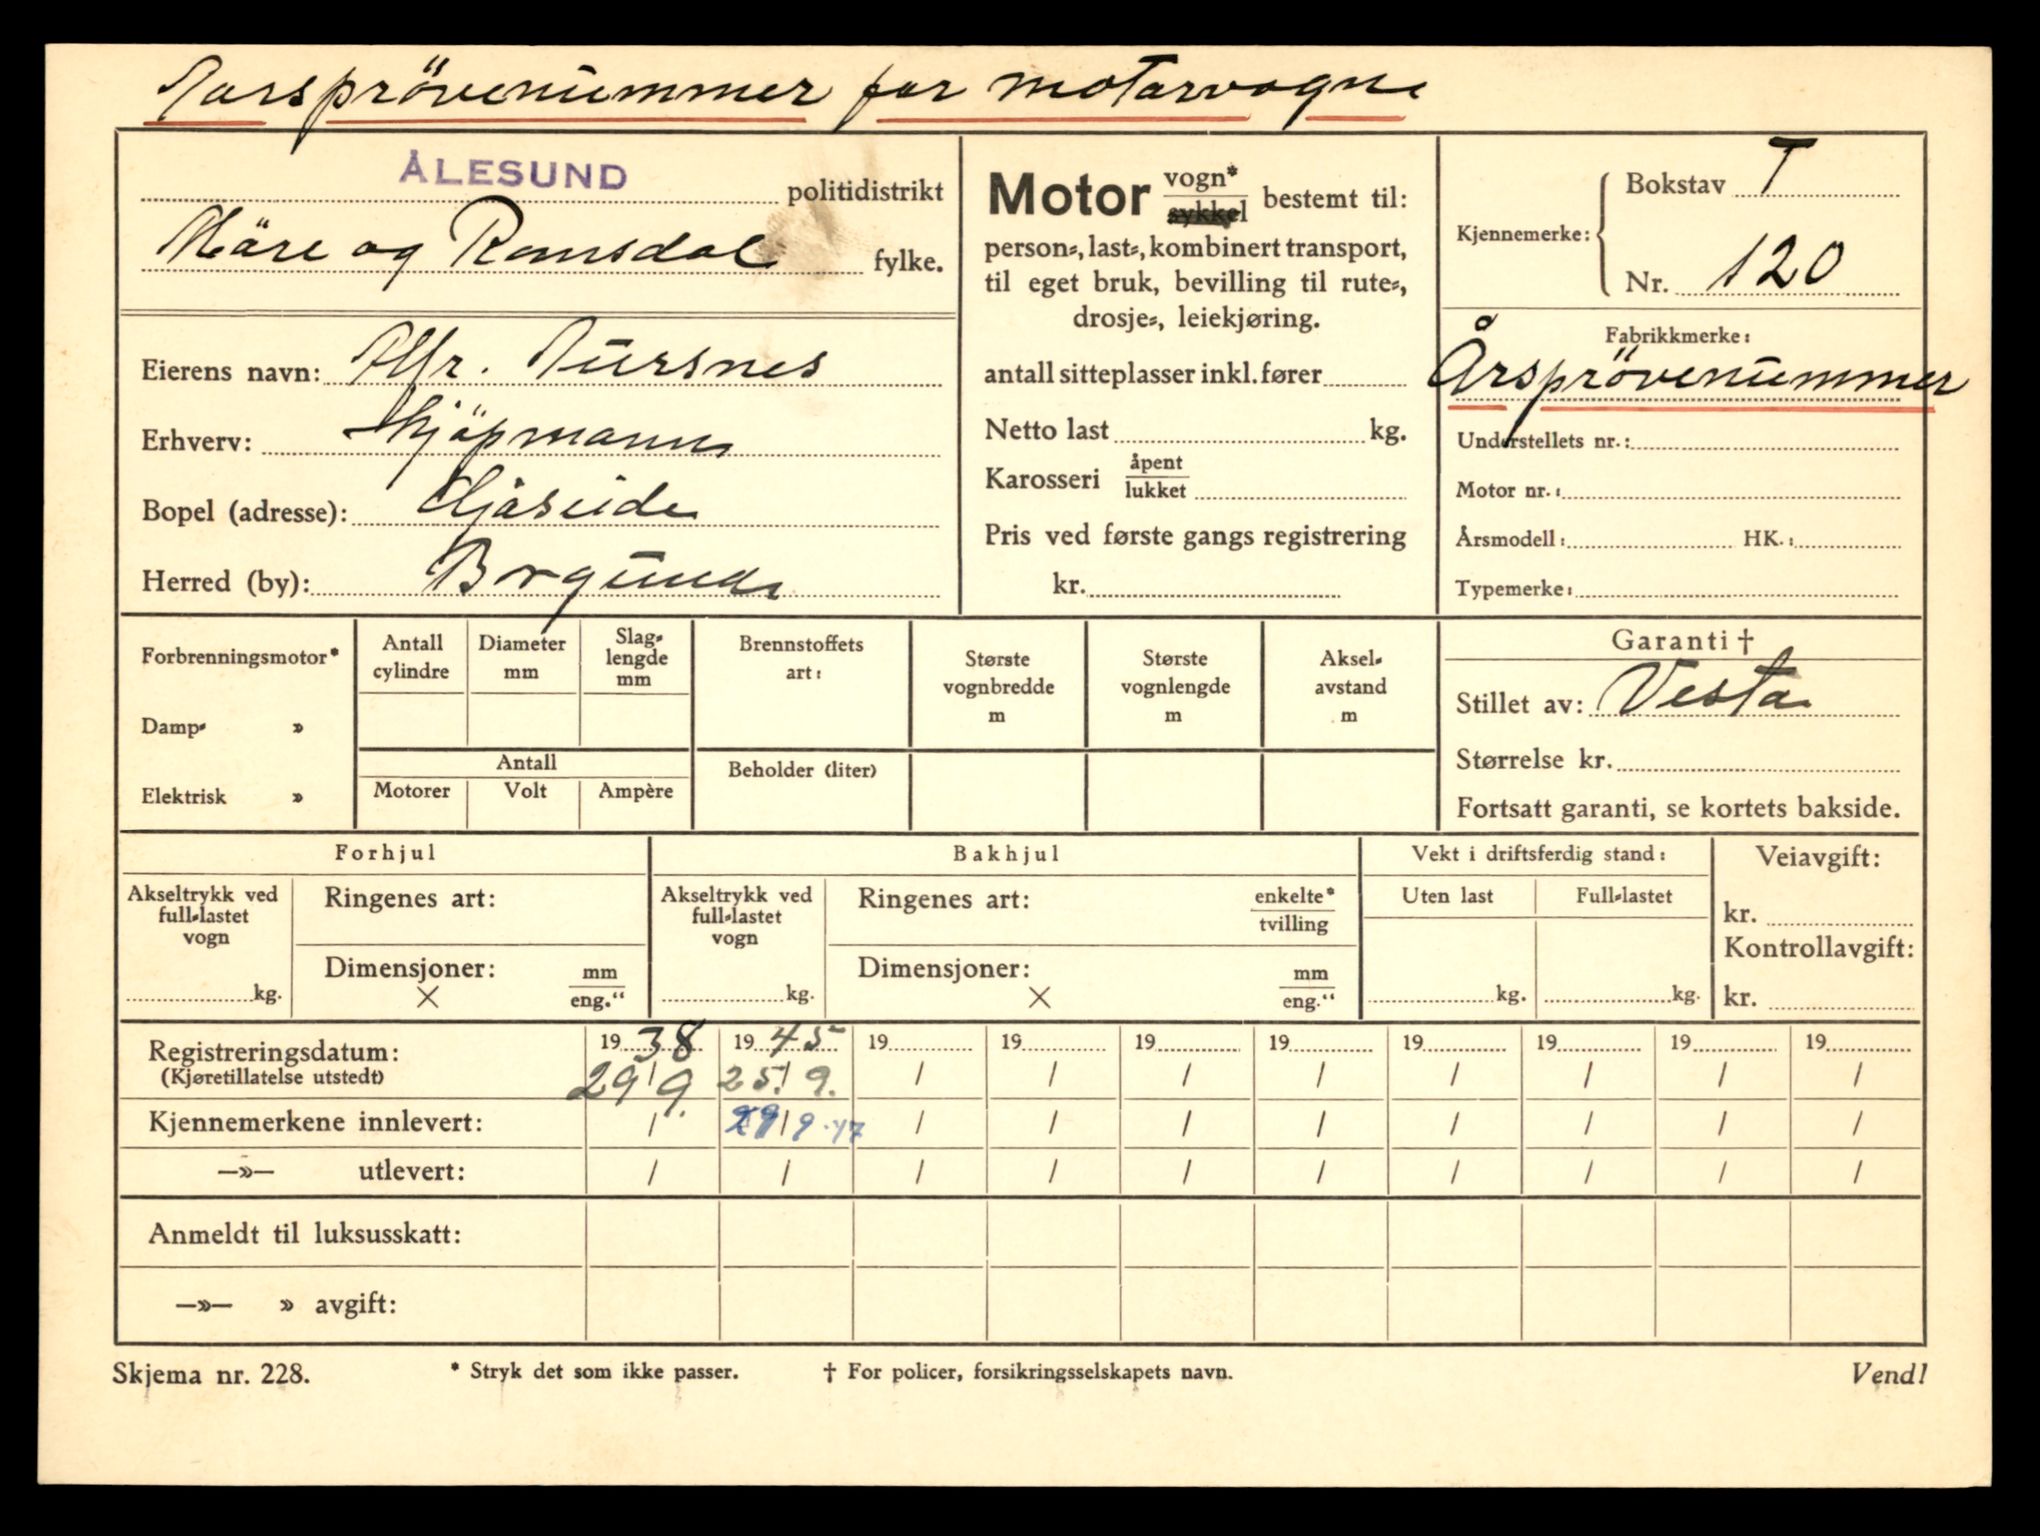 Aarsprövenummer for motorvogn
ÅLESUND politidistrikt
Möre og Romsdal fylke.
Eierens navn: Alfr. Tursnes
Erhverv: Kjöpmann
Bopel (adresse): Spjelkavik
Herred (by): Borgund
Motor vogn* sykkel bestemt til:
person-, last-, kombinert transport,
til eget bruk, bevilling til rute-,
drosje-, leiekjøring.
antall sitteplasser inkl. fører
Netto last kg.
Karosseri åpent lukket
Pris ved første gangs registrering
kr.
Kjennemerke: Bokstav T
Nr. 120
Fabrikkmerke:
Årsprövenummer
Understellets nr.:
Motor nr.:
Årsmodell: HK.:
Typemerke:
Forbrenningsmotor*
Damp- »
Elektrisk »
Antall cylindre
Diameter mm
Slag-lengde mm
Antall
Motorer Volt Ampère
Brennstoffets art:
Beholder (liter)
Største vognbredde m
Største vognlengde m
Aksel-avstand m
Garanti †
Stillet av: Vesta
Størrelse kr.
Fortsatt garanti, se kortets bakside.
Forhjul
Akseltrykk ved full-lastet vogn
kg.
Ringenes art:
Dimensjoner: mm eng."
×
Bakhjul
Akseltrykk ved full-lastet vogn
kg.
Ringenes art: enkelte* tvilling
Dimensjoner: mm eng."
×
Vekt i driftsferdig stand:
Uten last Full-lastet
kg. kg.
Veiavgift:
kr.
Kontrollavgift:
kr.
Registreringsdatum: 1938 1945 19 19 19 19 19 19 19 19
(Kjøretillatelse utstedt) 29/9. 25/9. / / / / / / / /
Kjennemerkene innlevert: / 29/9.47 / / / / / / / /
—»— utlevert: / / / / / / / / / /
Anmeldt til luksusskatt:
—»— » avgift:
Skjema nr. 228. * Stryk det som ikke passer. † For policer, forsikringsselskapets navn. Vend!